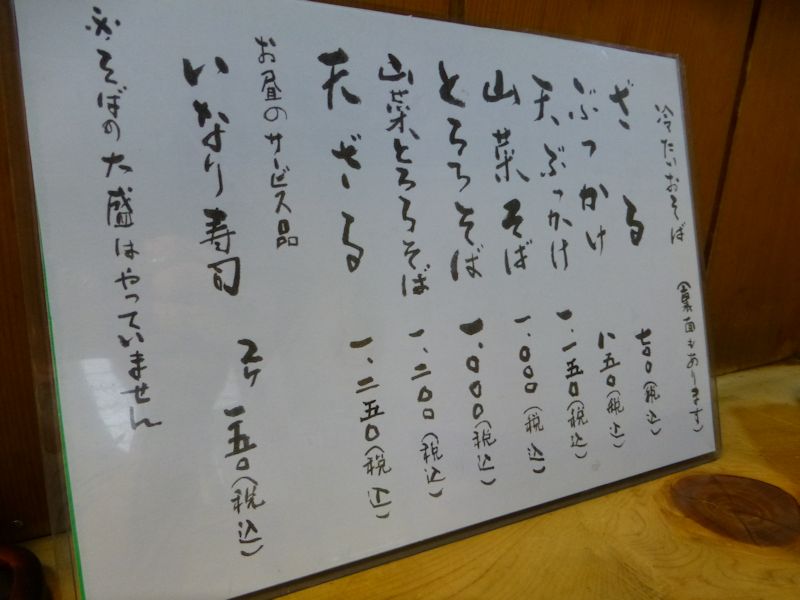 冷たいおそば (裏面もあります)
ざる 七〇〇(税込)
ぶっかけ 八五〇(税込)
天ぶっかけ 一、一五〇(税込)
山菜そば 一、〇〇〇(税込)
とろろそば 一、〇〇〇(税込)
山菜とろろそば 一、二〇〇(税込)
天ざる 一、二五〇(税込)
お昼のサービス品
いなり寿司 2ヶ 一五〇(税込)
※そばの大盛はやっていません